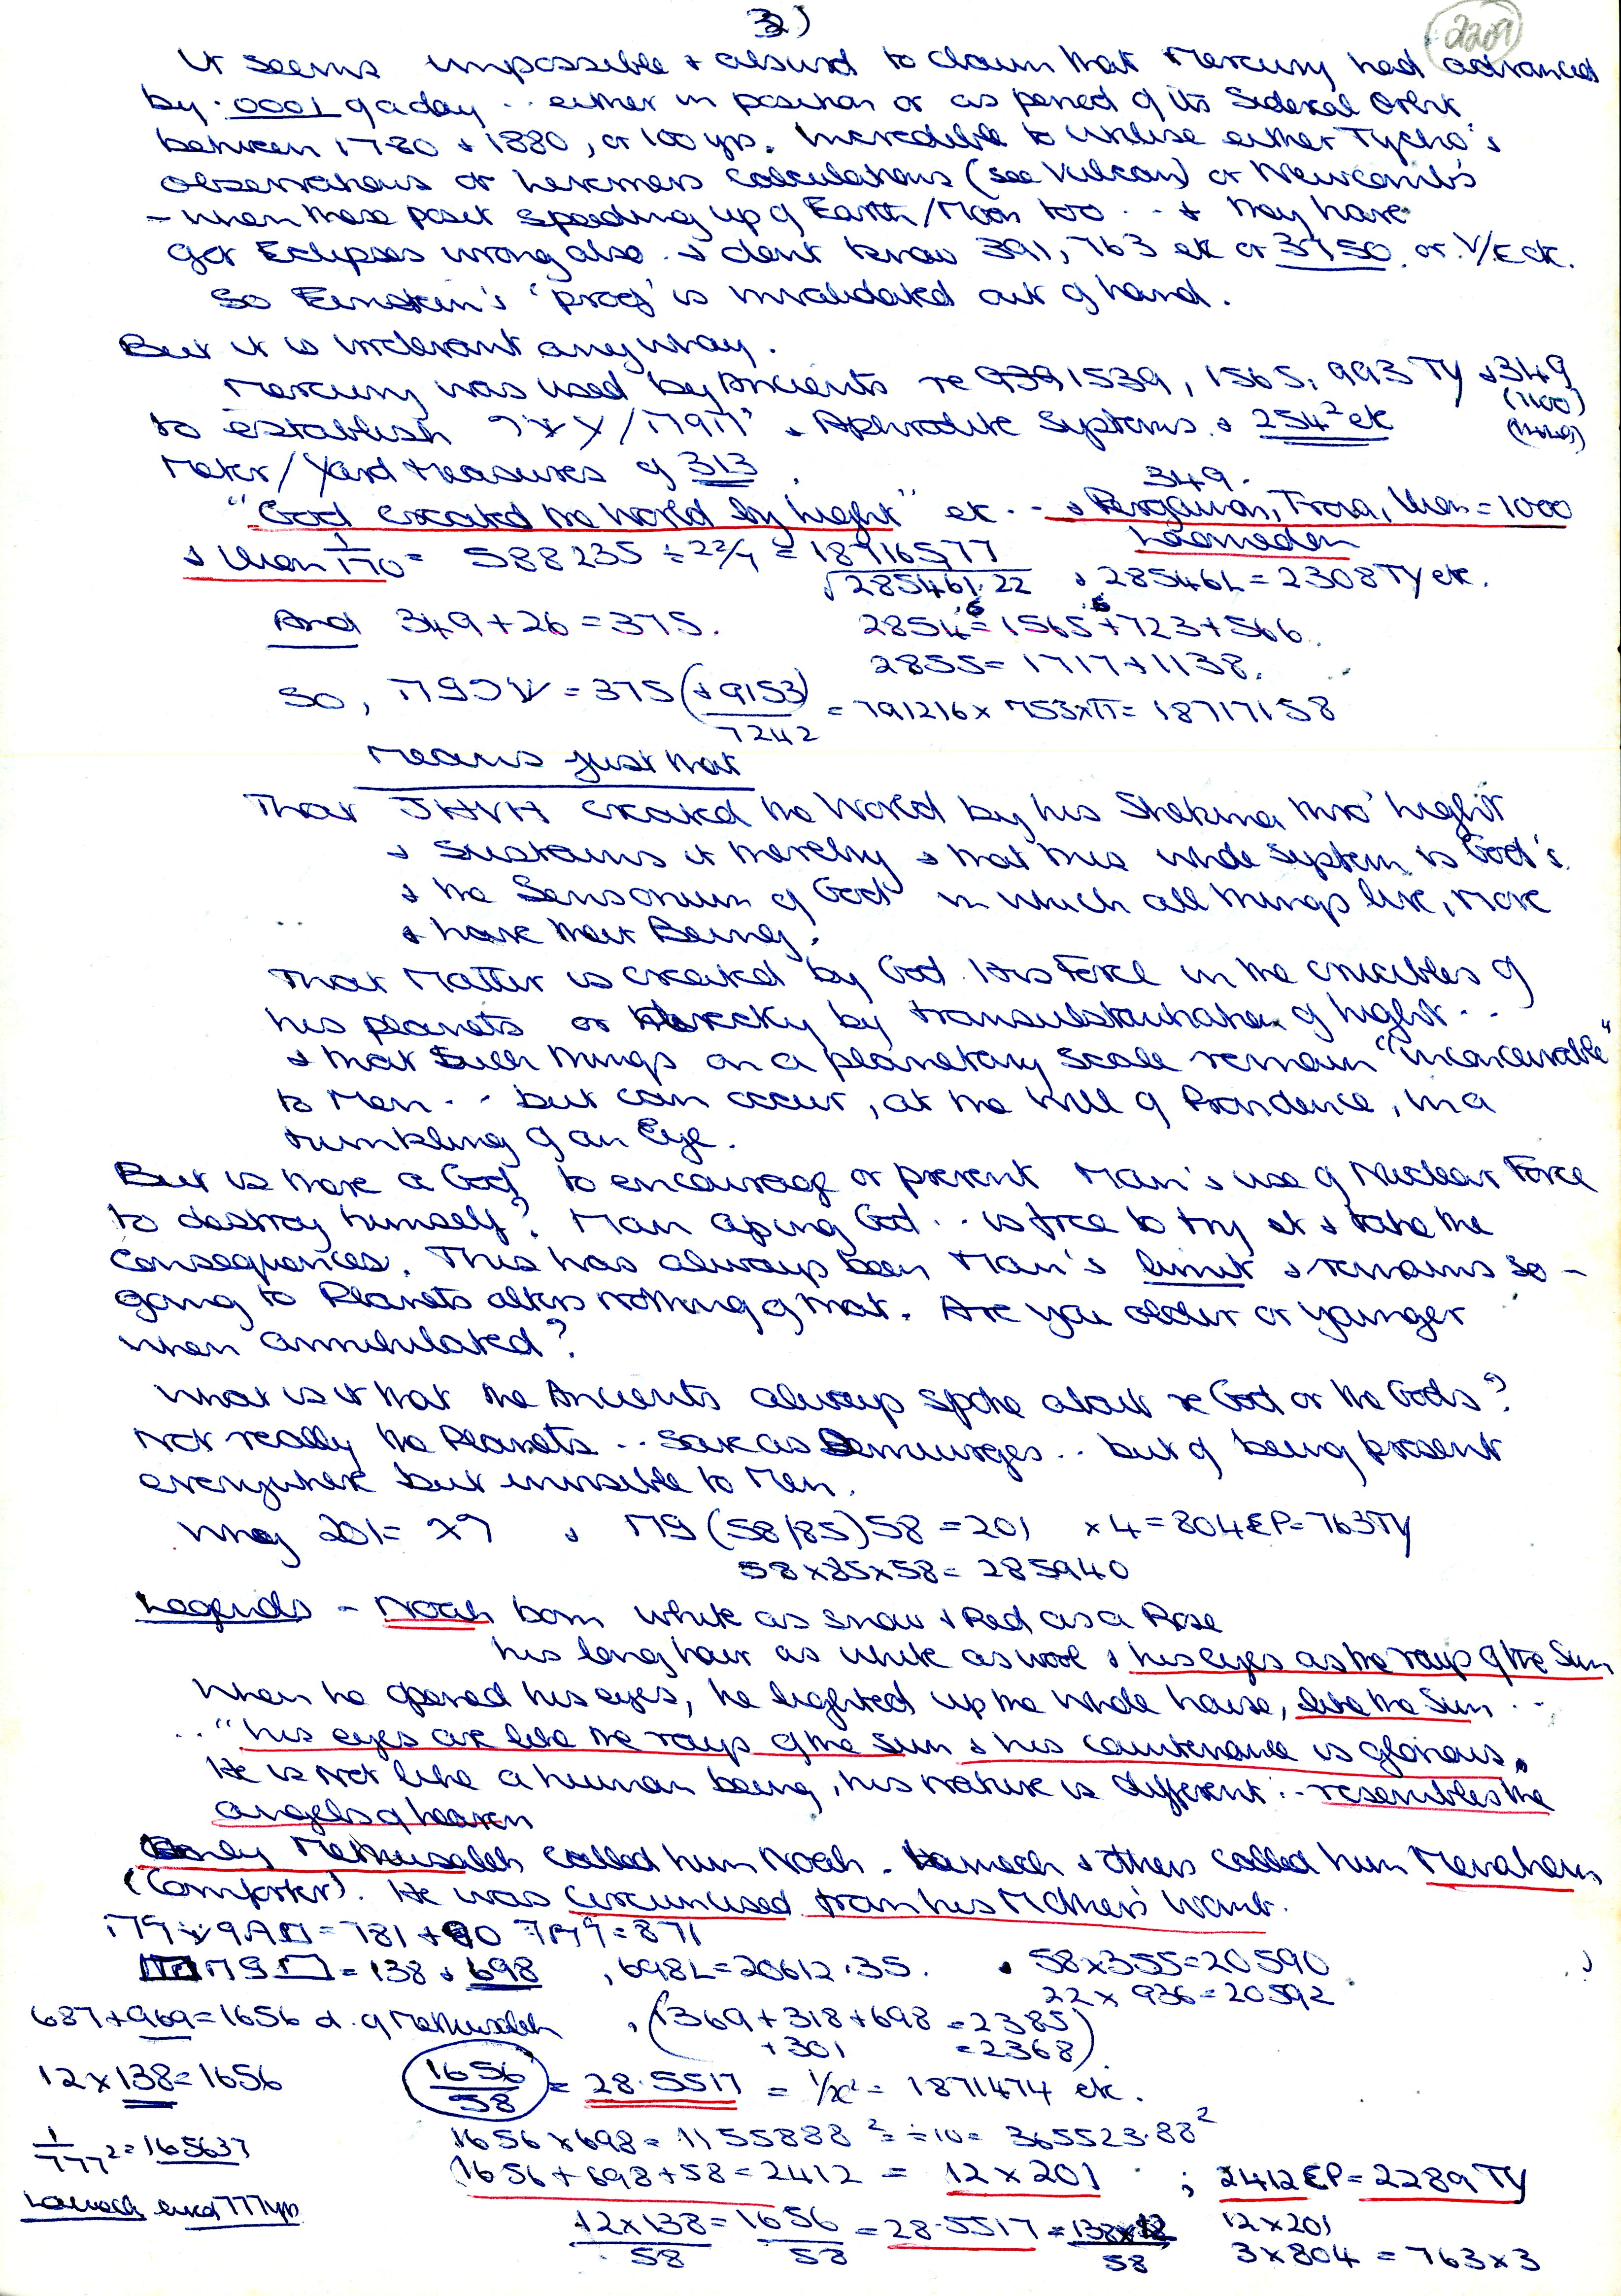 32)
2209
It seems impossible & absurd to claim that Mercury had advanced
by .0001 of a day .. either in position or as period of its Sidereal Orbit
between 1780 & 1880, or 100 yrs. Incredible to utilise either Tycho's
observations or calculations (see Vulcan) or Newcomb's
- when these posit speeding up of Earth/Moon too ... & may have
got Eclipses wrong also. & dont know 391, 763 etc or 3750. or V/E etc.
So Einstein's 'proof' is invalidated out of hand.
But it is irrelevant anyway.
Mercury was used by Ancients re 1539, 1565, 993 TY & 349
to establish & Aphrodite Systems. & 254² etc
Meter/Yard Measures of 313.
349.
"God created the World by Light" etc... & Pergamon, Troia, = 1000
Laomedon
& 1/170 = 588235 ÷ 22/7 = 18716577
√285461.22 , 28546L = 2308 TY etc.
And 349 + 26 = 375. 2854.6 = 1565.6 + 723 + 566.
2855 = 1717 + 1138.
So, = 375 (& 9153)/7242 = 791216 x 753 x π = 18717158
Means just that
That JHVH created the World by his Shekina thro' Light
& sustains it thereby & that this whole system is God's.
& the Sensorium of God in which all things live, move
& have their Being.
That Matter is created by God. His Force in the crucibles of
his planets or directly by transubstantiation of Light ..
& that such things on a planetary scale remain "inconceivable"
to Men .. but can occur, at the Will of Providence, in a
twinkling of an Eye.
But is there a God to encourage or prevent Man's use of Nuclear Force
to destroy himself? Man aping God .. is free to try it & take the
consequences. This has always been Man's limit & remains so -
going to Planets alters nothing of that. Are you older or younger
when annihilated?
What is it that the Ancients always spoke about re God or the Gods?
Not really the Planets .. save as Demiurges .. but of being present
everywhere but invisible to Men.
Why 201 = & (58/85) 58 = 201 x 4 = 804 EP = 763 TY
58 x 85 x 58 = 285940
Legends - Noah born white as snow & Red as a Rose
his long hair as white as wool & his eyes as the rays of the Sun
When he opened his eyes, he lighted up the whole house, like the Sun ..
.. "his eyes are like the rays of the Sun & his countenance is glorious.
He is not like a human being, his nature is different .. resembles the
angels of heaven
Only Methuselah called him Noah. Lamech & others called him Menahem
(Comforter). He was circumcised from his Mother's Womb.
= 781 + 90 = 871
= 138 & 698 , 698L = 20612.35. & 58 x 355 = 20590
22 x 936 = 20592
687 + 969 = 1656 d. of Methuselah , (1369 + 318 + 698 = 2385)
+ 301 = 2368)
12 x 138 = 1656 1656/58 = 28.5517 = 1/x² = 1871474 etc.
1656 x 698 = 1155888 ² ÷ 10 = 365523.88²
1/777² = 165637 (1656 + 698 + 58 = 2412 = 12 x 201 ; 2412 EP = 2289 TY
Lamech lived 777 yrs 12 x 138/58 = 1656/58 = 28.5517 = 138 x 12/58 12 x 201
3 x 804 = 763 x 3